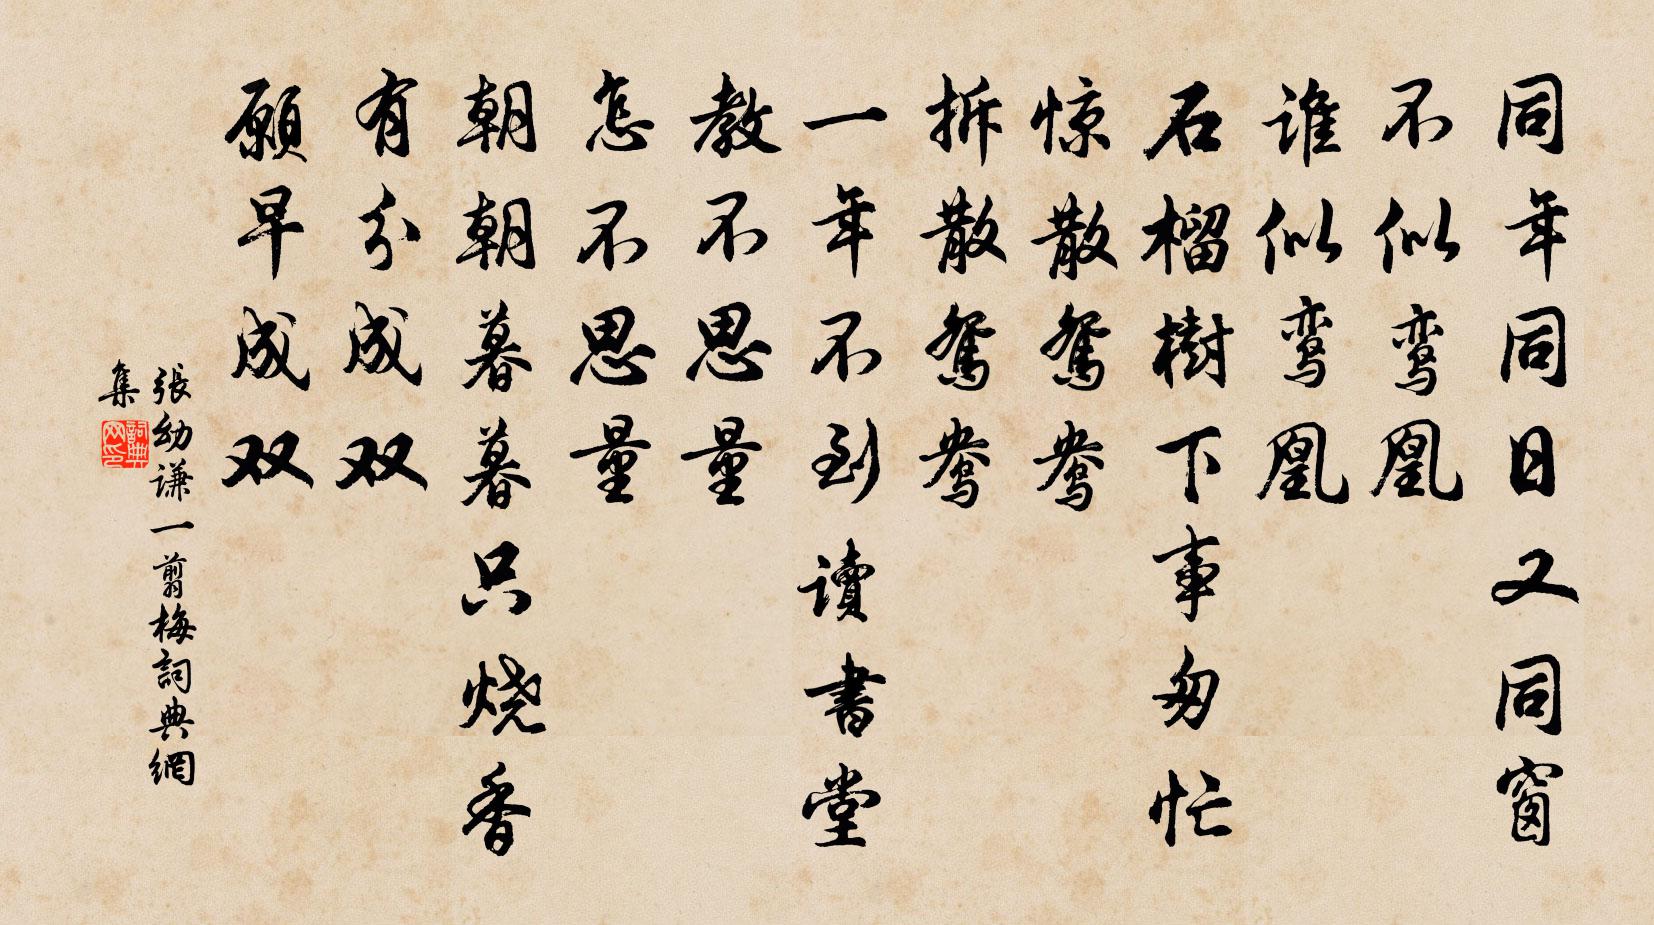 同年同日又同窗
不似鸾凰
谁似鸾凰
石榴樹下事匆忙
惊散鴛鸯
拆散鴛鸯
一年不到读書堂
教不思量
怎不思量
朝朝暮暮只烧香
有分成双
願早成双
張幼谦一剪梅詞典網
集
詞典网印